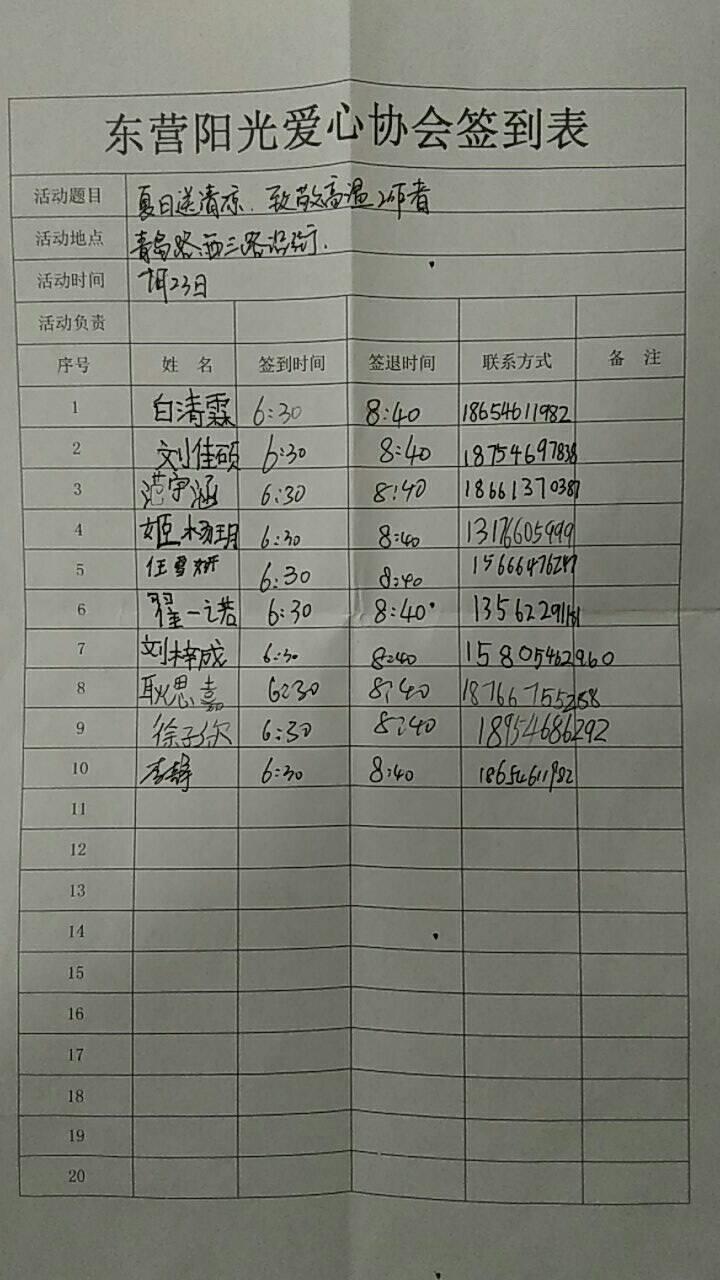 东营阳光爱心协会签到表
活动题目 夏日送清凉、致敬高温工作者
活动地点 青岛路、西三路沿街.
活动时间 7月23日
活动负责
序号 姓 名 签到时间 签退时间 联系方式 备 注
1 白清霖 6:30 8:40 18654611982
2 刘佳硕 6:30 8:40 18754697838
3 范宇涵 6:30 8:40 18661370387
4 姬杨玥 6:30 8:40 13176605999
5 任雪妍 6:30 8:40
6 翟一诺 6:30 8:40
7 刘梓成 6:30 8:40 15805462960
8 耿思嘉 6:30 8:40
9 徐子欣 6:30 8:40 18954686292
10 李静 6:30 8:40 18654611982
11
12
13
14
15
16
17
18
19
20